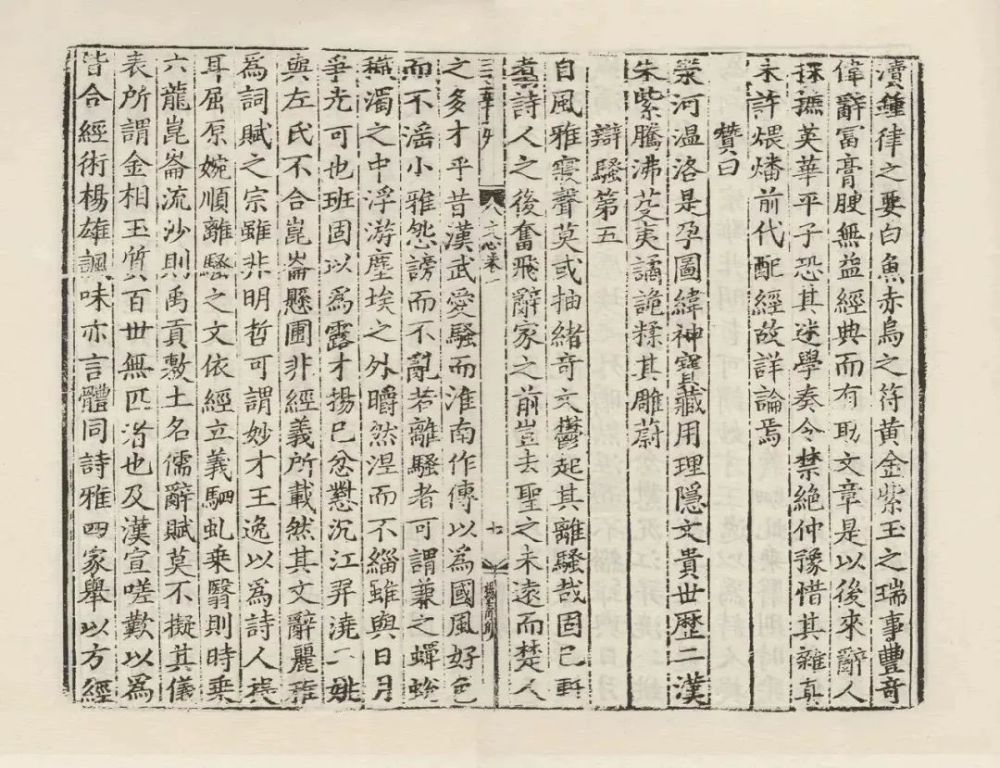 瀆鍾律之要白魚赤烏之符黄金紫玉之瑞事豐奇
偉辭富膏腴無益經典而有助文章是以後來辭人
採摭英華平子恐其迷學奏令禁絶仲豫惜其雜真
未許煨燔前代配經故詳論焉
贊曰
榮河温洛是孕圖緯神寳藏用理隱文貴世歴二漢
朱紫騰沸芟夷譎詭糅其雕蔚
辯騷第五
自風雅寢聲莫或抽緒奇文鬱起其離騷哉固已軒
翥詩人之後奮飛辭家之前豈去聖之未遠而楚人
文心卷一
之多才乎昔漢武愛騷而淮南作傳以爲國風好色
而不滛小雅怨謗而不亂若離騷者可謂兼之蟬蛻
穢濁之中浮游塵埃之外皭然涅而不緇雖與日月
爭光可也班固以爲露才揚己忿懟沉江羿澆二姚
與左氏不合崑崙懸圃非經義所載然其文辭麗雅
爲詞賦之宗雖非明哲可謂妙才王逸以爲詩人提
耳屈原婉順離騷之文依經立義駟虬乘翳則時乘
六龍崑崙流沙則禹貢敷土名儒辭賦莫不擬其儀
表所謂金相玉質百世無匹者也及漢宣嗟歎以爲
皆合經術楊雄諷味亦言體同詩雅四家舉以方經